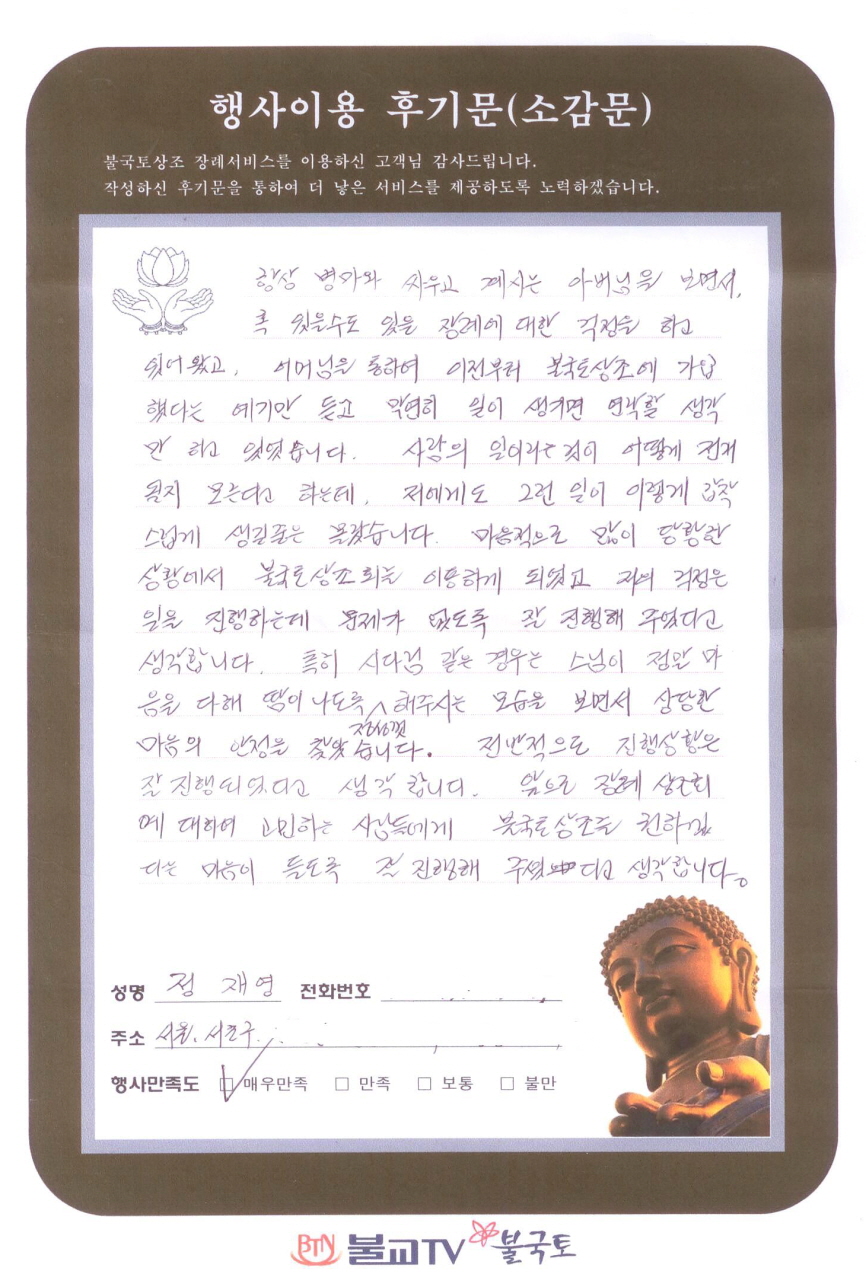 행사이용 후기문(소감문)
불국토상조 장례서비스를 이용하신 고객님 감사드립니다.
작성하신 후기문을 통하여 더 낳은 서비스를 제공하도록 노력하겠습니다.
항상 병마와 싸우고 계시는 아버님을 보면서,
혹 있을수도 있을 장례에 대한 걱정을 하고
있어 왔고, 어머님을 통하여 이전부터 불국토상조에 가입
했다는 얘기만 듣고 막연히 일이 생기면 연락할 생각
만 하고 있었습니다. 사람의 일이라는 것이 어떻게 전개
될지 모른다고 하는데, 저에게도 그런 일이 이렇게 갑작
스럽게 생길줄은 몰랐습니다. 마음적으로 많이 당황한
상황에서 불국토상조회를 이용하게 되었고 저의 걱정은
일을 진행하는데 문제가 없도록 잘 진행해 주었다고
생각합니다. 특히 시다림 같은 경우는 스님이 정말 마
음을 다해 땀이 나도록 정성껏 해주시는 모습을 보면서 상당한
마음의 안정을 찾았습니다. 전반적으로 진행상황은
잘 진행되었다고 생각합니다. 앞으로 장례 상조회
에 대하여 고민하는 사람들에게 불국토상조를 권하겠
다는 마음이 들도록 잘 진행해 주었다고 생각합니다。
성명 정재영 전화번호
주소 서울, 서초구
행사만족도 ☑ 매우만족 □ 만족 □ 보통 □ 불만
BTN 불교TV 불국토